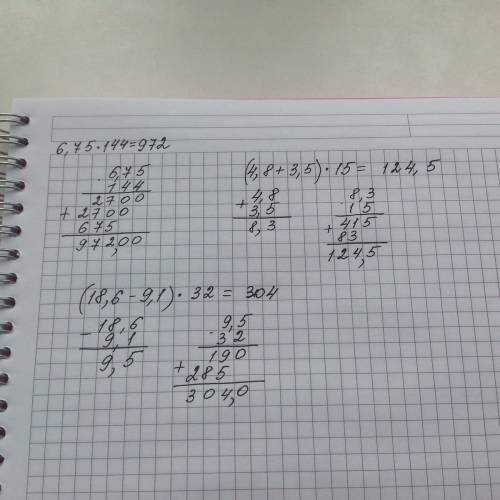 6,75·144=972
· 6,75
144
2700
+ 2700
675
972,00
(4,8+3,5)·15= 124,5
+ 4,8
3,5
8,3
· 8,3
15
+ 415
83
124,5
(18,6-9,1)·32 = 304
- 18,6
9,1
9,5
· 9,5
32
190
+ 285
304,0